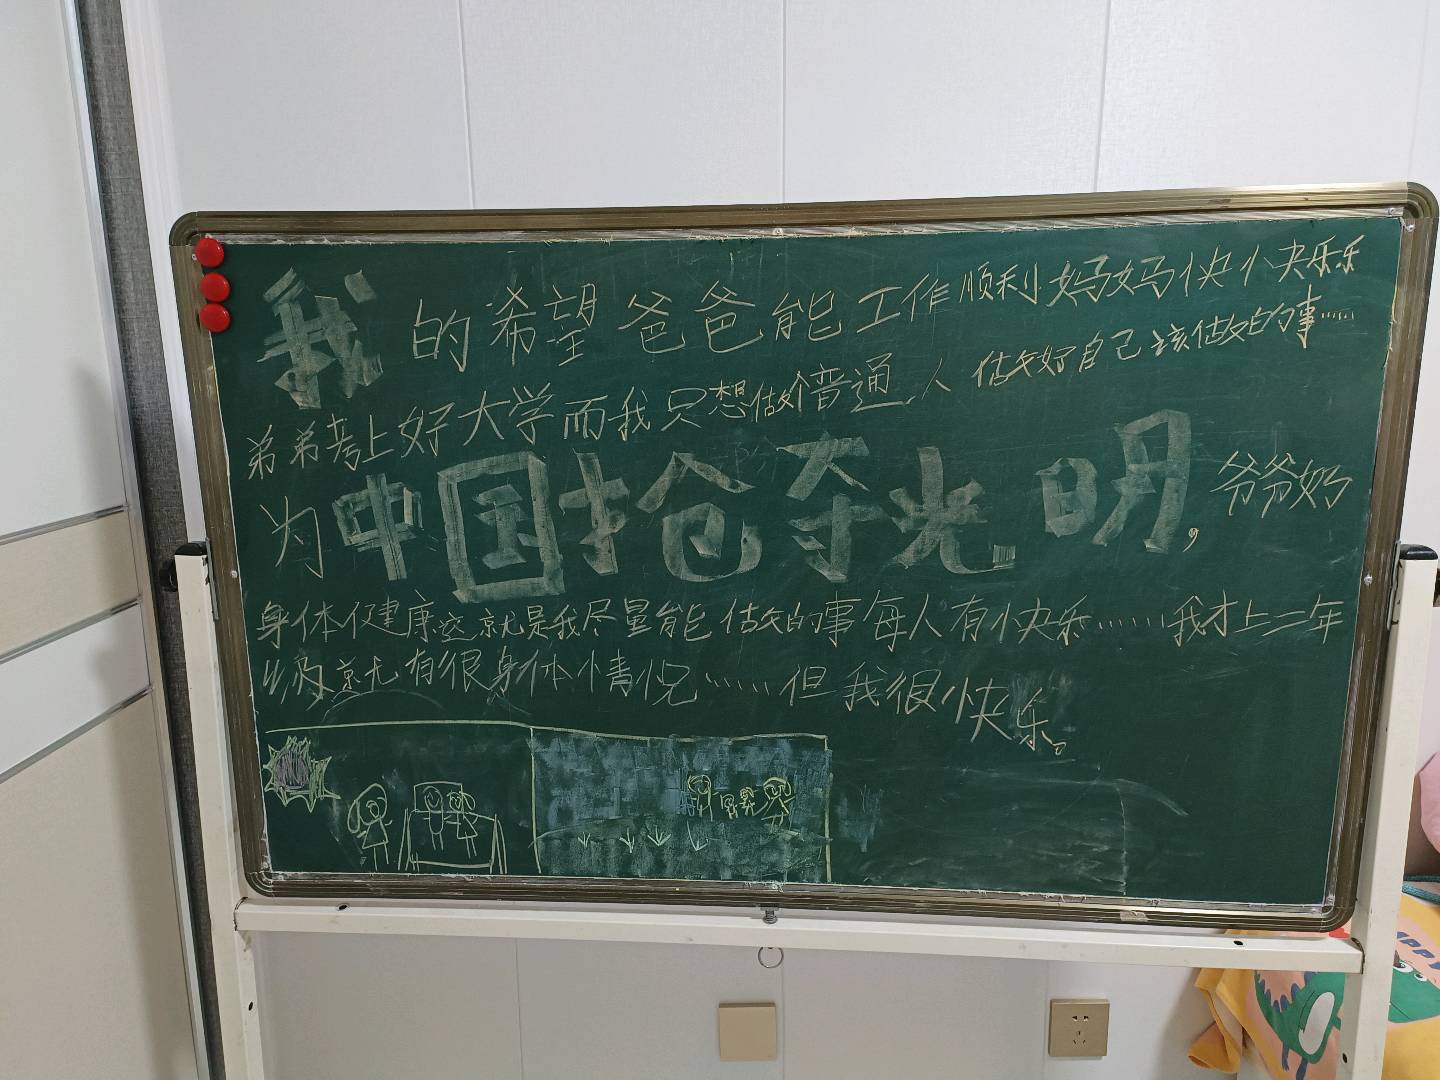 我的希望爸爸能工作顺利妈妈快快乐乐
弟弟考上好大学而我只想做个普通人做好自己该做的事……
为中国抢夺光明，爷爷奶
身体健康这就是我尽量能做的事每人有快乐……我才上二年
级就有很身体情况……但我很快乐。
APPY